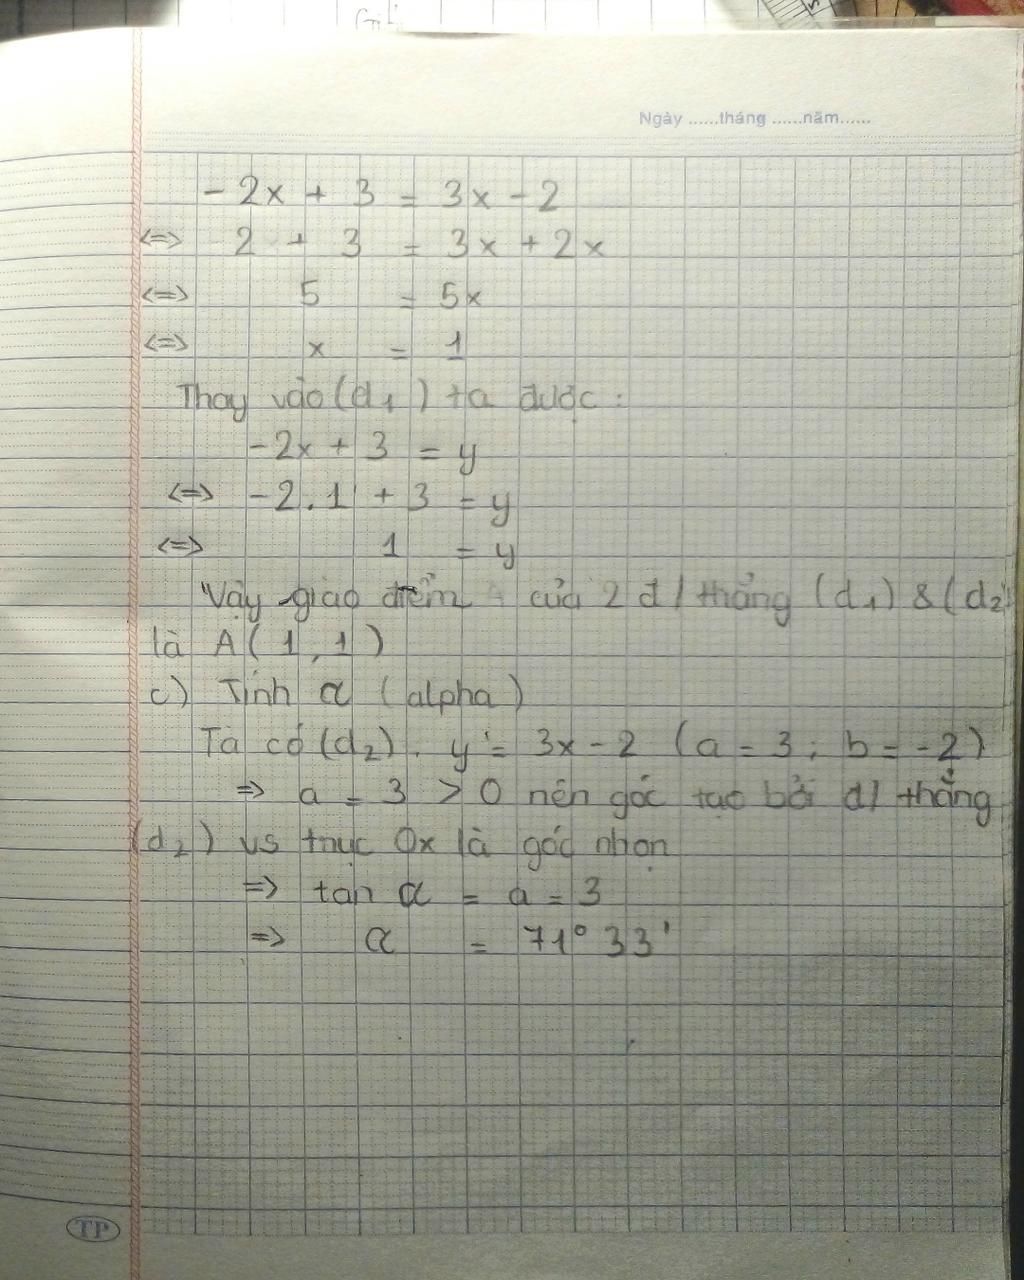 Ngày ......tháng ......năm......
- 2x + 3 = 3x - 2
<=> 2 + 3 = 3x + 2x
<=> 5 = 5x
<=> x = 1
Thay vào (d1) ta được :
-2x + 3 = y
<=> -2.1 + 3 = y
<=> 1 = y
Vậy giao điểm A của 2 đ/thẳng (d1) & (d2)
là A(1,1)
c) Tính α (alpha)
Ta có (d2). y = 3x - 2 (a = 3 ; b = -2)
=> a = 3 > 0 nên góc tạo bởi đ/thẳng
(d2) vs trục Ox là góc nhọn
=> tan α = a = 3
=> α = 71° 33'
TP